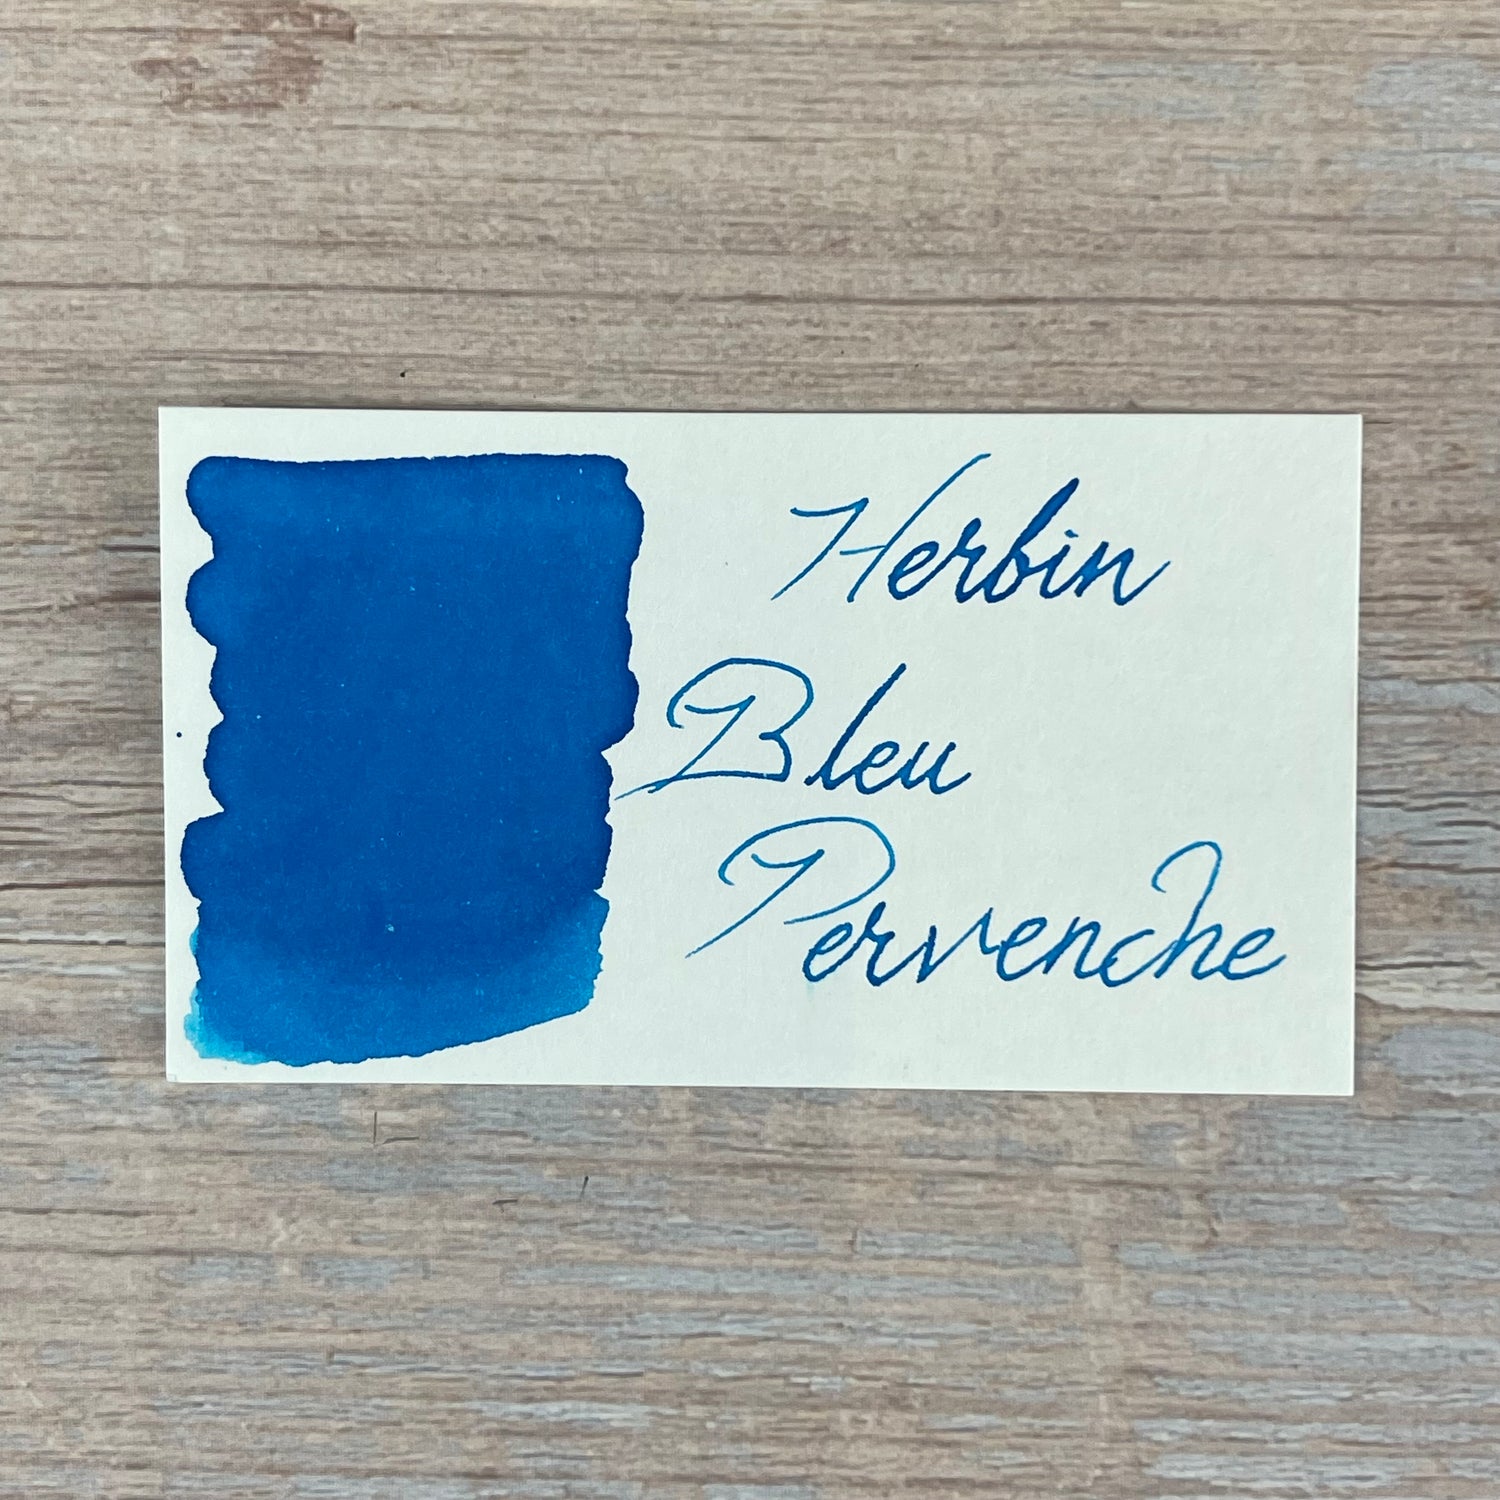 Herbin
Bleu
Pervenche